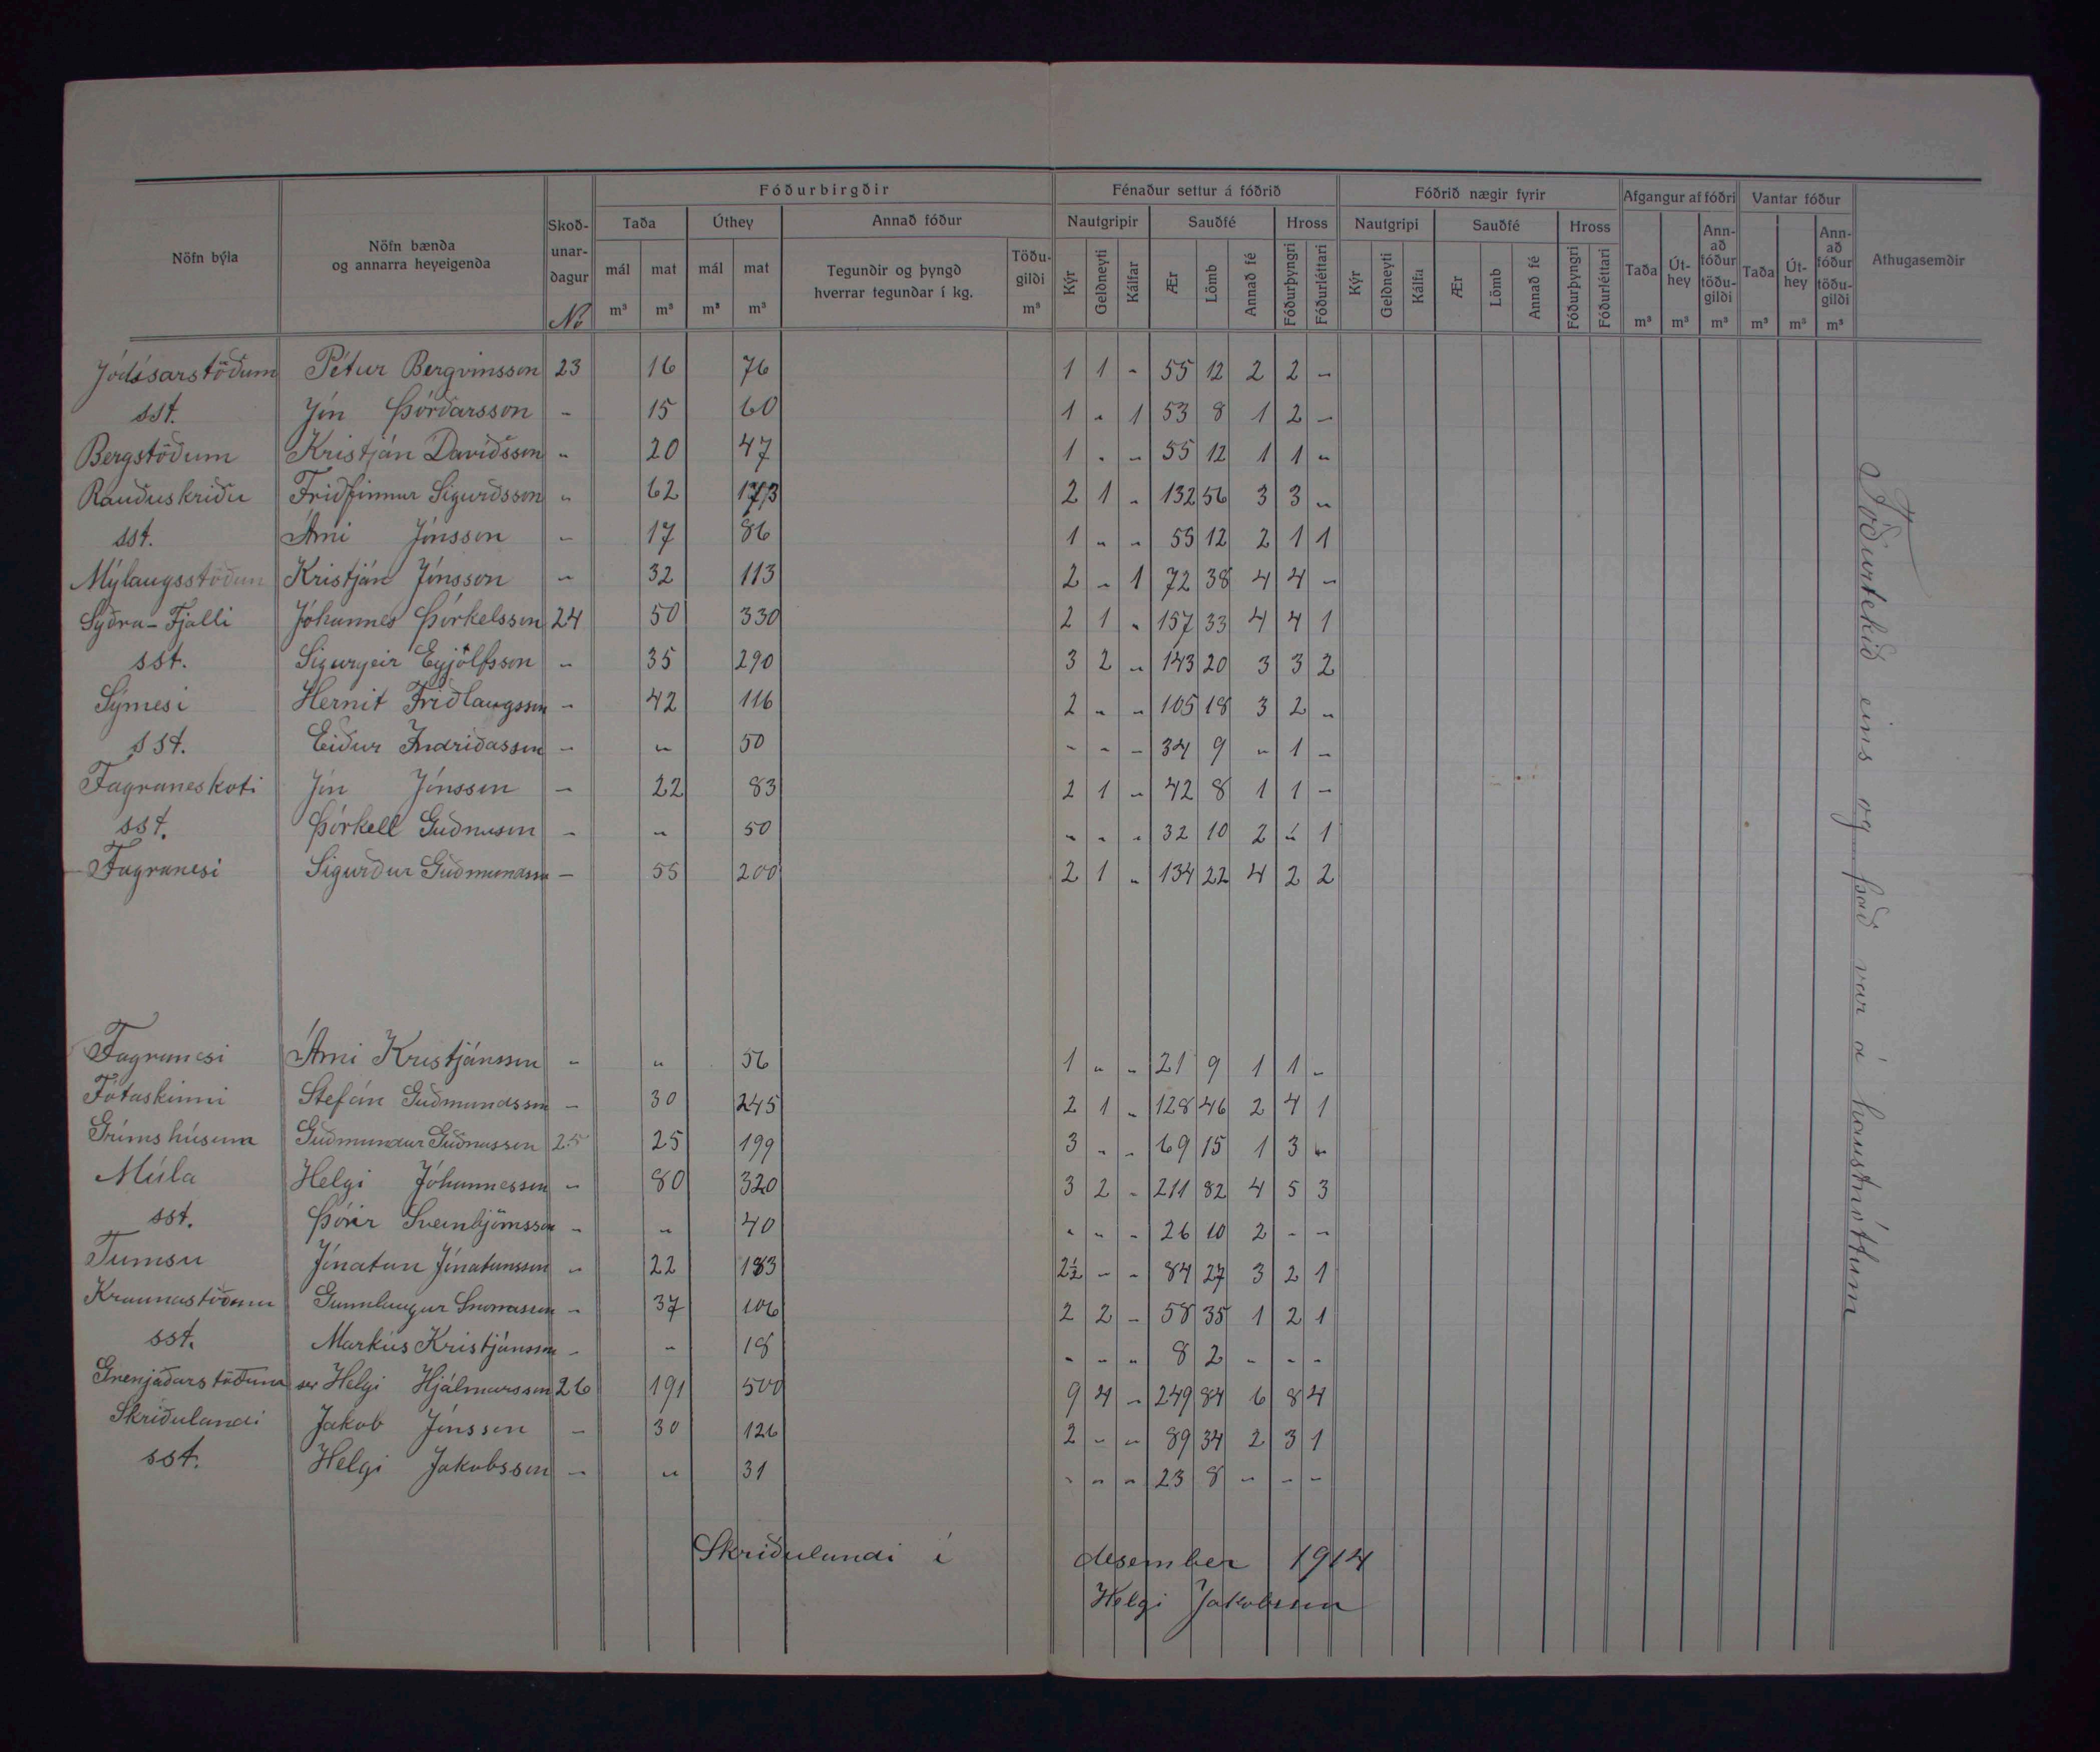 Fóðurbirgðir Fénaður settur á fóðrið Fóðrið nægir fyrir Afgangur af fóðri Vantar fóður
Nöfn býla Nöfn bænda og annarra heyeigenda Skoðunardagur No Taða Úthey Annað fóður Nautgripir Sauðfé Hross Nautgripi Sauðfé Hross Taða Úthey Annað fóður töðugildi Taða Úthey Annað fóður töðugildi Athugasemdir
mál mat mál mat Tegundir og þyngd hverrar tegundar í kg. Töðugildi Kýr Geldneyti Kálfar Ær Lömb Annað fé Fóðurþyngri Fóðurléttari Kýr Geldneyti Kálfa Ær Lömb Annað fé Fóðurþyngri Fóðurléttari
m³ m³ m³ m³ m³ m³ m³ m³ m³ m³ m³
Jódísarstöðum Pétur Bergvinsson 23 16 76 1 1 " 55 12 2 2 "
sst. Jón Þórðarsson " 15 60 1 " 1 53 8 1 2 "
Bergstöðum Kristján Davíðsson " 20 47 1 " " 55 12 1 1 "
Rauðuskriðu Friðfinnur Sigurðsson " 62 173 2 1 " 132 56 3 3 "
sst. Árni Jónsson " 17 86 1 " " 55 12 2 1 1
Mýlaugsstöðum Kristján Jónsson " 32 113 2 " 1 72 38 4 4 "
Syðra-Fjalli Jóhannes Þorkelsson 24 50 330 2 1 " 157 33 4 4 1
sst. Sigurgeir Eyjólfsson " 35 290 3 2 " 143 20 3 3 2
Sýrnesi Hernit Friðlaugsson " 42 116 2 " " 105 18 3 2 "
sst. Eiður Indriðasson " " 50 " " " 34 9 " 1 "
Fagraneskoti Jón Jónsson " 22 83 2 1 " 42 8 1 1 "
sst. Þorkell Guðnason " " 50 " " " 32 10 2 " 1
Fagranesi Sigurður Guðmundsson " 55 200 2 1 " 134 22 4 2 2
Fagranesi Árni Kristjánsson " " 56 1 " " 21 9 1 1 "
Fótaskinni Stefán Guðmundsson " 30 245 2 1 " 128 46 2 4 1
Grímshúsum Guðmundur Guðnasson 25 25 199 3 " " 69 15 1 3 "
Múla Helgi Jóhannesson " 80 320 3 2 " 211 82 4 5 3
sst. Þórir Sveinbjörnsson " " 40 " " " 26 10 2 " "
Tumsu Jónatan Jónatansson " 22 183 2½ " " 84 27 3 2 1
Kraunastöðum Gunnlaugur Snorrason " 37 106 2 2 " 58 35 1 2 1
sst. Markús Kristjánsson " " 18 " " " 8 2 " " "
Grenjaðarstöðum ser Helgi Hjálmarsson 26 191 500 9 4 " 249 84 6 8 4
Skriðulandi Jakob Jónsson " 30 126 2 " " 89 34 2 3 1
sst. Helgi Jakobsson " " 31 " " " 23 8 " " "
Fóðurtekið eins og það var á haustnóttum
Skriðulandi í desember 1914
Helgi Jakobsson